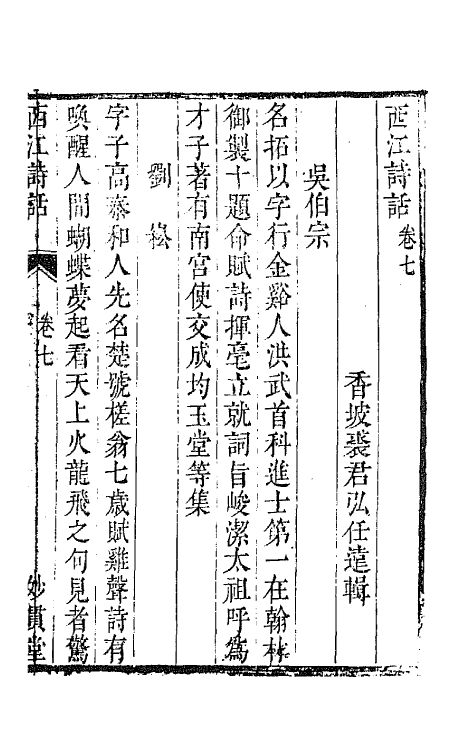 西江詩話 卷七
香坡裘君弘任遠輯
吳伯宗
名祏以字行金谿人洪武首科進士第一在翰林
御製十題命賦詩揮毫立就詞旨峻潔太祖呼為
才子著有南宮使交成均玉堂等集
劉 崧
字子高泰和人先名楚號槎翁七歲賦雞聲詩有
喚醒人間蝴蝶夢起看天上火龍飛之句見者驚
西江詩話 卷七 妙貫堂